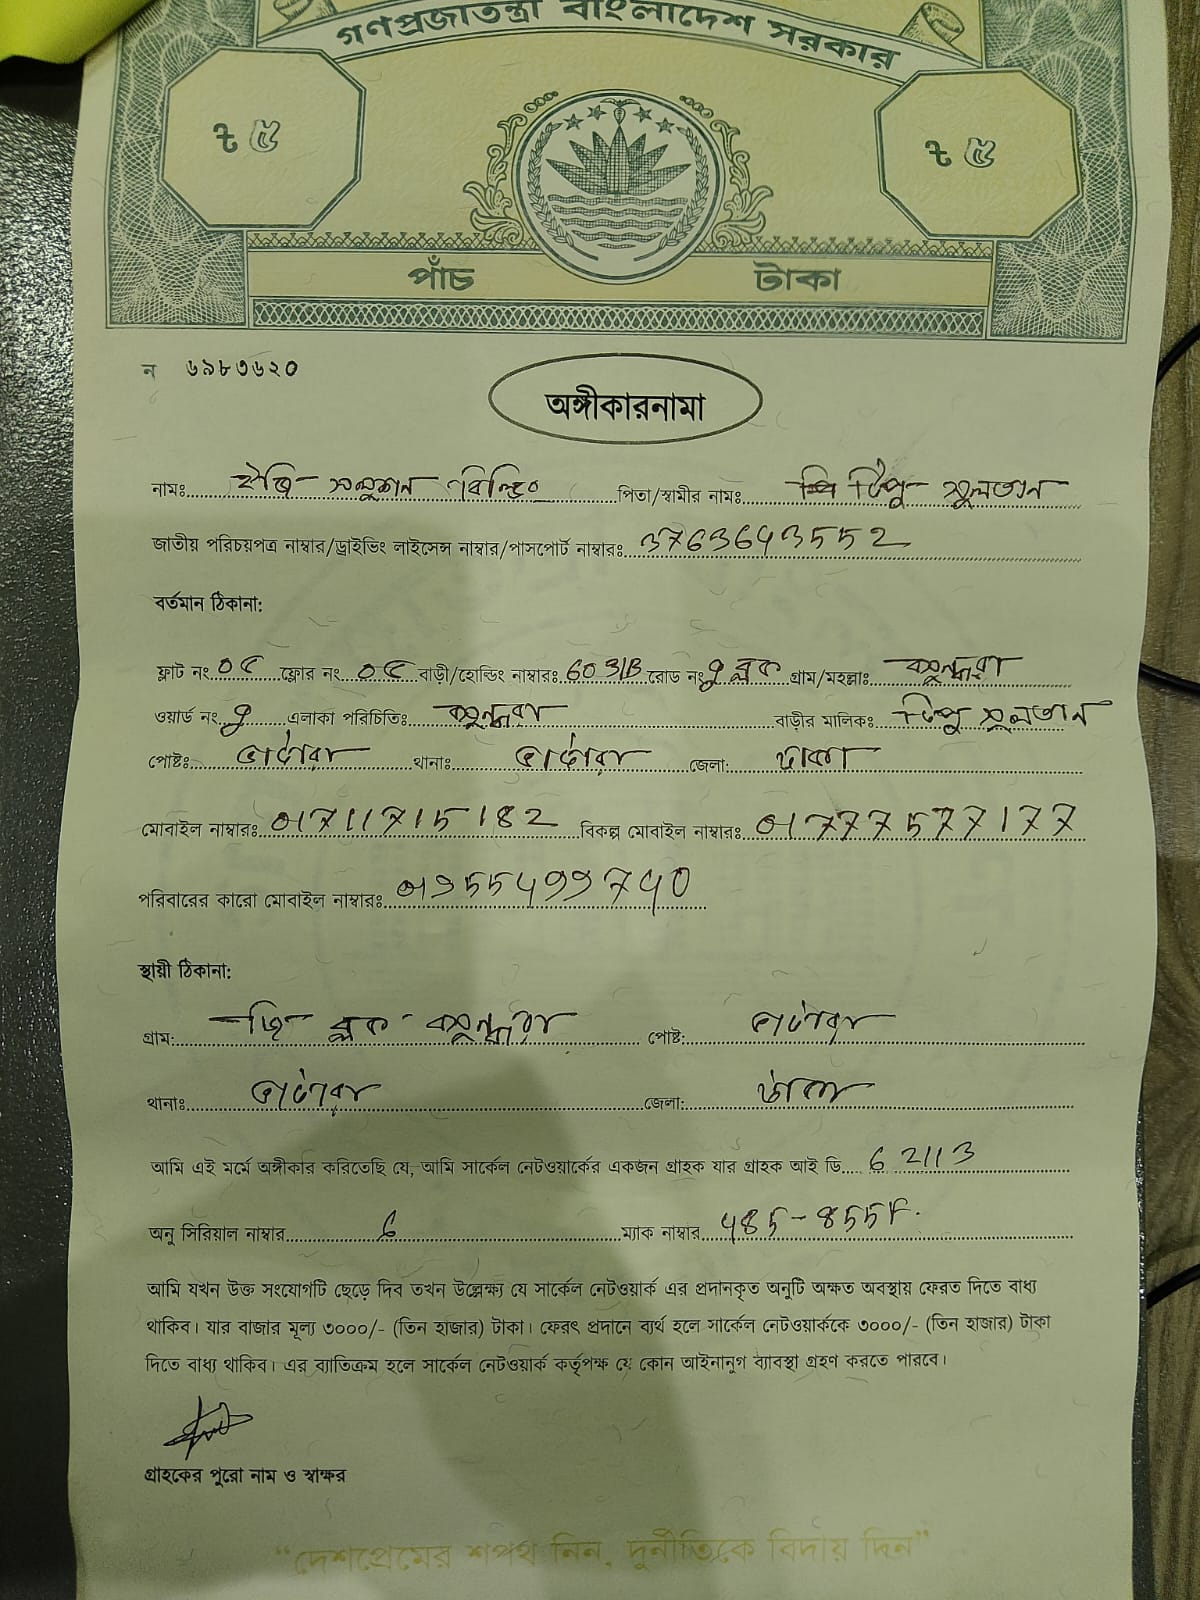 গণপ্রজাতন্ত্রী বাংলাদেশ সরকার
৳ ৫ ৳ ৫
পাঁচ টাকা
ন ৬৯৮৩৬২০
অঙ্গীকারনামা
নামঃ ইজি সলুশন বিল্ডিং পিতা/স্বামীর নামঃ টিপু সুলতান
জাতীয় পরিচয়পত্র নাম্বার/ড্রাইভিং লাইসেন্স নাম্বার/পাসপোর্ট নাম্বারঃ 3763643552
বর্তমান ঠিকানা:
ফ্লাট নং ০৫ ফ্লোর নং ০৫ বাড়ী/হোল্ডিং নাম্বারঃ রোড নং ব্লক গ্রাম/মহল্লাঃ বসুন্ধরা
ওয়ার্ড নং এলাকা পরিচিতিঃ বসুন্ধরা বাড়ীর মালিকঃ টিপু সুলতান
পোষ্টঃ ভাটারা থানাঃ ভাটারা জেলা: ঢাকা
মোবাইল নাম্বারঃ 01711715182 বিকল্প মোবাইল নাম্বারঃ 01777577177
পরিবারের কারো মোবাইল নাম্বারঃ
স্থায়ী ঠিকানা:
গ্রাম: জি ব্লক বসুন্ধরা পোষ্ট: ভাটারা
থানাঃ ভাটারা জেলা: ঢাকা
আমি এই মর্মে অঙ্গীকার করিতেছি যে, আমি সার্কেল নেটওয়ার্কের একজন গ্রাহক যার গ্রাহক আই ডি 62113
অনু সিরিয়াল নাম্বার 6 ম্যাক নাম্বার
আমি যখন উক্ত সংযোগটি ছেড়ে দিব তখন উল্লেক্ষ্য যে সার্কেল নেটওয়ার্ক এর প্রদানকৃত অনুটি অক্ষত অবস্থায় ফেরত দিতে বাধ্য
থাকিব। যার বাজার মূল্য ৩০০০/- (তিন হাজার) টাকা। ফেরৎ প্রদানে ব্যর্থ হলে সার্কেল নেটওয়ার্ককে ৩০০০/- (তিন হাজার) টাকা
দিতে বাধ্য থাকিব। এর ব্যাতিক্রম হলে সার্কেল নেটওয়ার্ক কর্তৃপক্ষ যে কোন আইনানুগ ব্যাবস্থা গ্রহণ করতে পারবে।
গ্রাহকের পুরো নাম ও স্বাক্ষর
“দেশপ্রেমের শপথ নিন, দুর্নীতিকে বিদায় দিন”